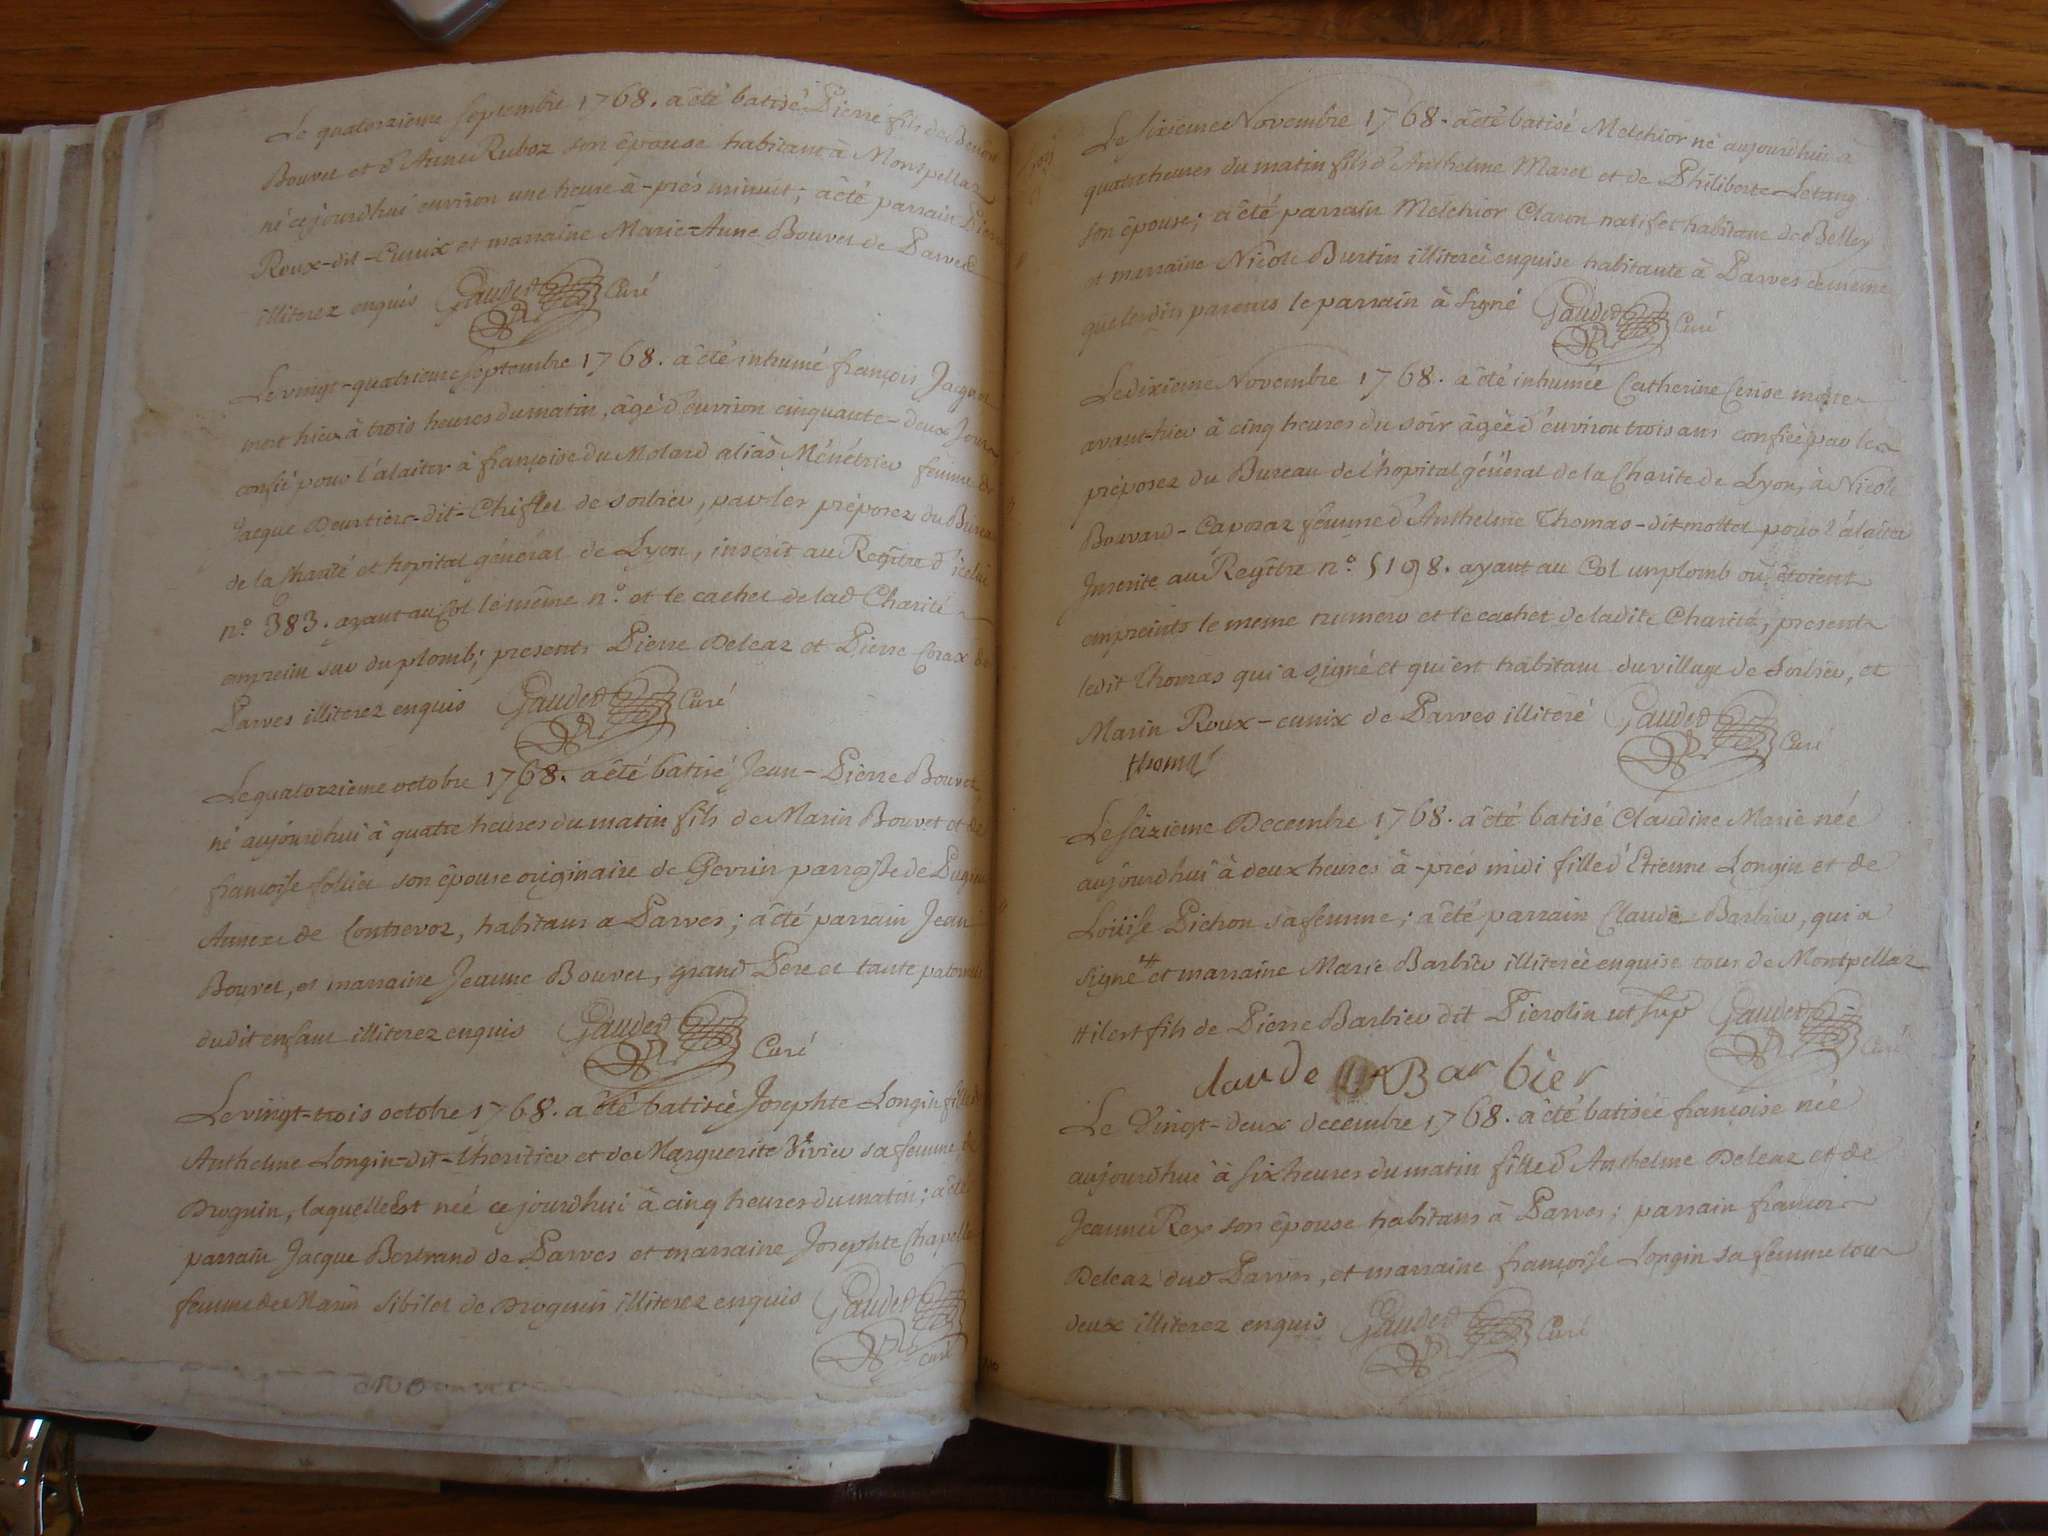 Le quatorzieme septembre 1768. a êté batisé Pierre fils de Benoit
Bouvet et d'Anne Ruboz son êpouse habitant à Montpellaz
né ce jourdhui environ une heure à-près minuit; a êté parrain Pierre
Roux-dit-Cunix et marraine Marie-Anne Bouvet de Parves
illiterez enquis Gaudet Curé
Le vingt-quatrieme septembre 1768. a êté inhumé françois Jacquet
mort hier à trois heures du matin, âgé d'environ cinquante-deux Jours
confié pour l'alaiter à françoise du Molard aliàs Ménétrier femme de
Jacque Deurtier-dit-Chiflet de sorbieu, par les préposez du Bureau
de la Charité et hopital général de Lyon, inscrit au Regître d'icelui
n.º 383. ayant au Col le même n.º et le cachet de lad Charité
empreint sur du plomb; presents Pierre Deleaz et Pierre Corax de
Parves illiterez enquis Gaudet Curé
Le quatorzieme octobre 1768. a êté batisé Jean-Pierre Bouvet
né aujourdhui à quatre heures du matin fils de Marin Bouvet et de
françoise follier son êpouse originaire de Gevrin parroisse de Pugieu
Annexe de Contrevoz, habitans a Parves; a êté parrain Jean
Bouvet, et marraine Jeanne Bouvet, grand Pere et tante paternels
dudit enfant illiterez enquis Gaudet Curé
Le vingt-trois octobre 1768. a êté batisée Josephte Longin fille d'
Anthelme Longin-dit-Lheritier et de Marguerite Vivier sa femme de
Droguin, laquelle est née ce jourdhui à cinq heures du matin; a êté
parrain Jacque Bertrand de Parves et marraine Josephte Chapelle
femme de Marin Sibilet de Droguin illiterez enquis Gaudet
Curé
Le sixieme Novembre 1768. a êté batisé Melchior né aujourdhui à
quatre heures du matin fils d'Anthelme Maret et de Philiberte Letang
son êpouse; a êté parrain Melchior Claron natif et habitant de Belley
et marraine Nicole Burtin illiterée enquise habitante à Parves de même
que lesdits parents le parrain à signé Gaudet Curé
Le dixieme Novembre 1768. a êté inhumée Catherine Cerise morte
avant-hier à cinq heures du soir âgée d'environ trois ans confiée par les
préposez du Bureau de l'hopital général de la Charité de Lyon, à Nicole
Bouvard-Caporaz femme d'Anthelme Thomas-dit mollet pour l'alaiter
Inscrite au Regître n.º 5198. ayant au Col un plomb où êtoient
empreints le meme numero et le cachet de ladite Charité, presents
ledit Thomas qui a signé et qui est habitant du village de Sorbieu, et
Marin Roux-cunix de Parves illiteré Gaudet Curé
thomas
Le seizieme Decembre 1768. a êté batisé Claudine Marie née
aujourdhui à deux heures à-près midi fille d'Etienne Longin et de
Loüise Pichon sa femme; a êté parrain Claude Barbier, qui a
signé # et marraine Marie Barbier illiterée enquise tous de Montpellaz
# il est fils de Pierre Barbier dit Pierolin ut sup Gaudet Curé
claude Barbier
Le Vingt-deux decembre 1768. a êté batisée françoise née
aujourdhui à six heures du matin fille d'Anthelme Deleaz et de
Jeanne Rey son êpouse habitans à Parves; parrain françois
Deleaz dud Parves, et marraine françoise Longin sa femme tous
deux illiterez enquis Gaudet Curé